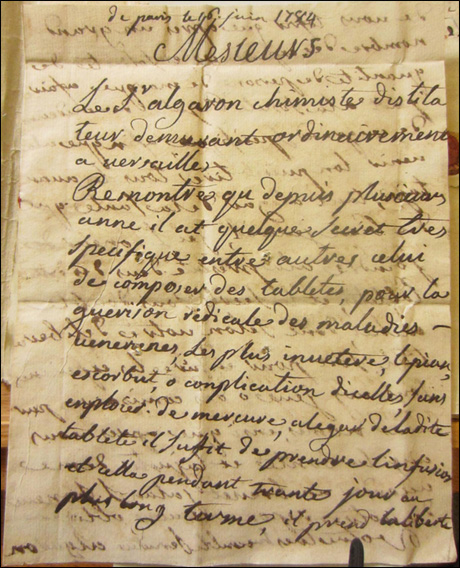 de paris le 16 juin 1784
Messieurs
Le Sr algaron chimiste distila
teur demeurant ordinairement
a versaille
Remontre qu depuis plusieurs
anne il at quelque secret tres
specifique entre autres celui
de composer des tabletes, pour la
guerison radicale des maladies
venerienes, Les plus inveteré, le pian,
escorbut, o conplication dicelles, sans
enploier de mercure, a legar de ladite
tablete il suffit de prendre linfusion
et cella pendant trante jour au
plus long terme, il prend la liberté